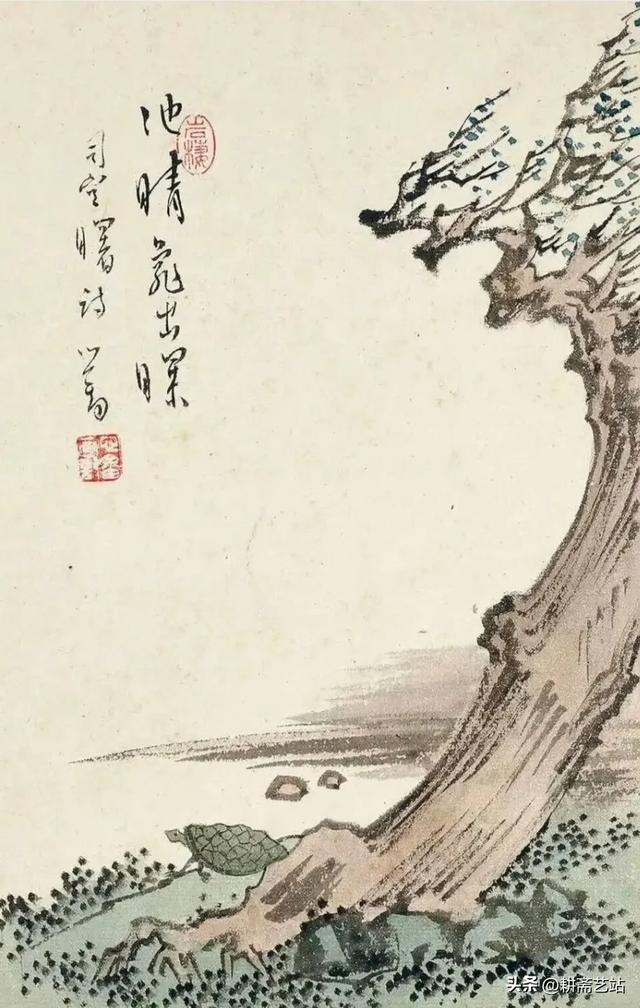 岩棲
池晴龜出曝
司空曙詩 心畬
头条 @耕斋艺站